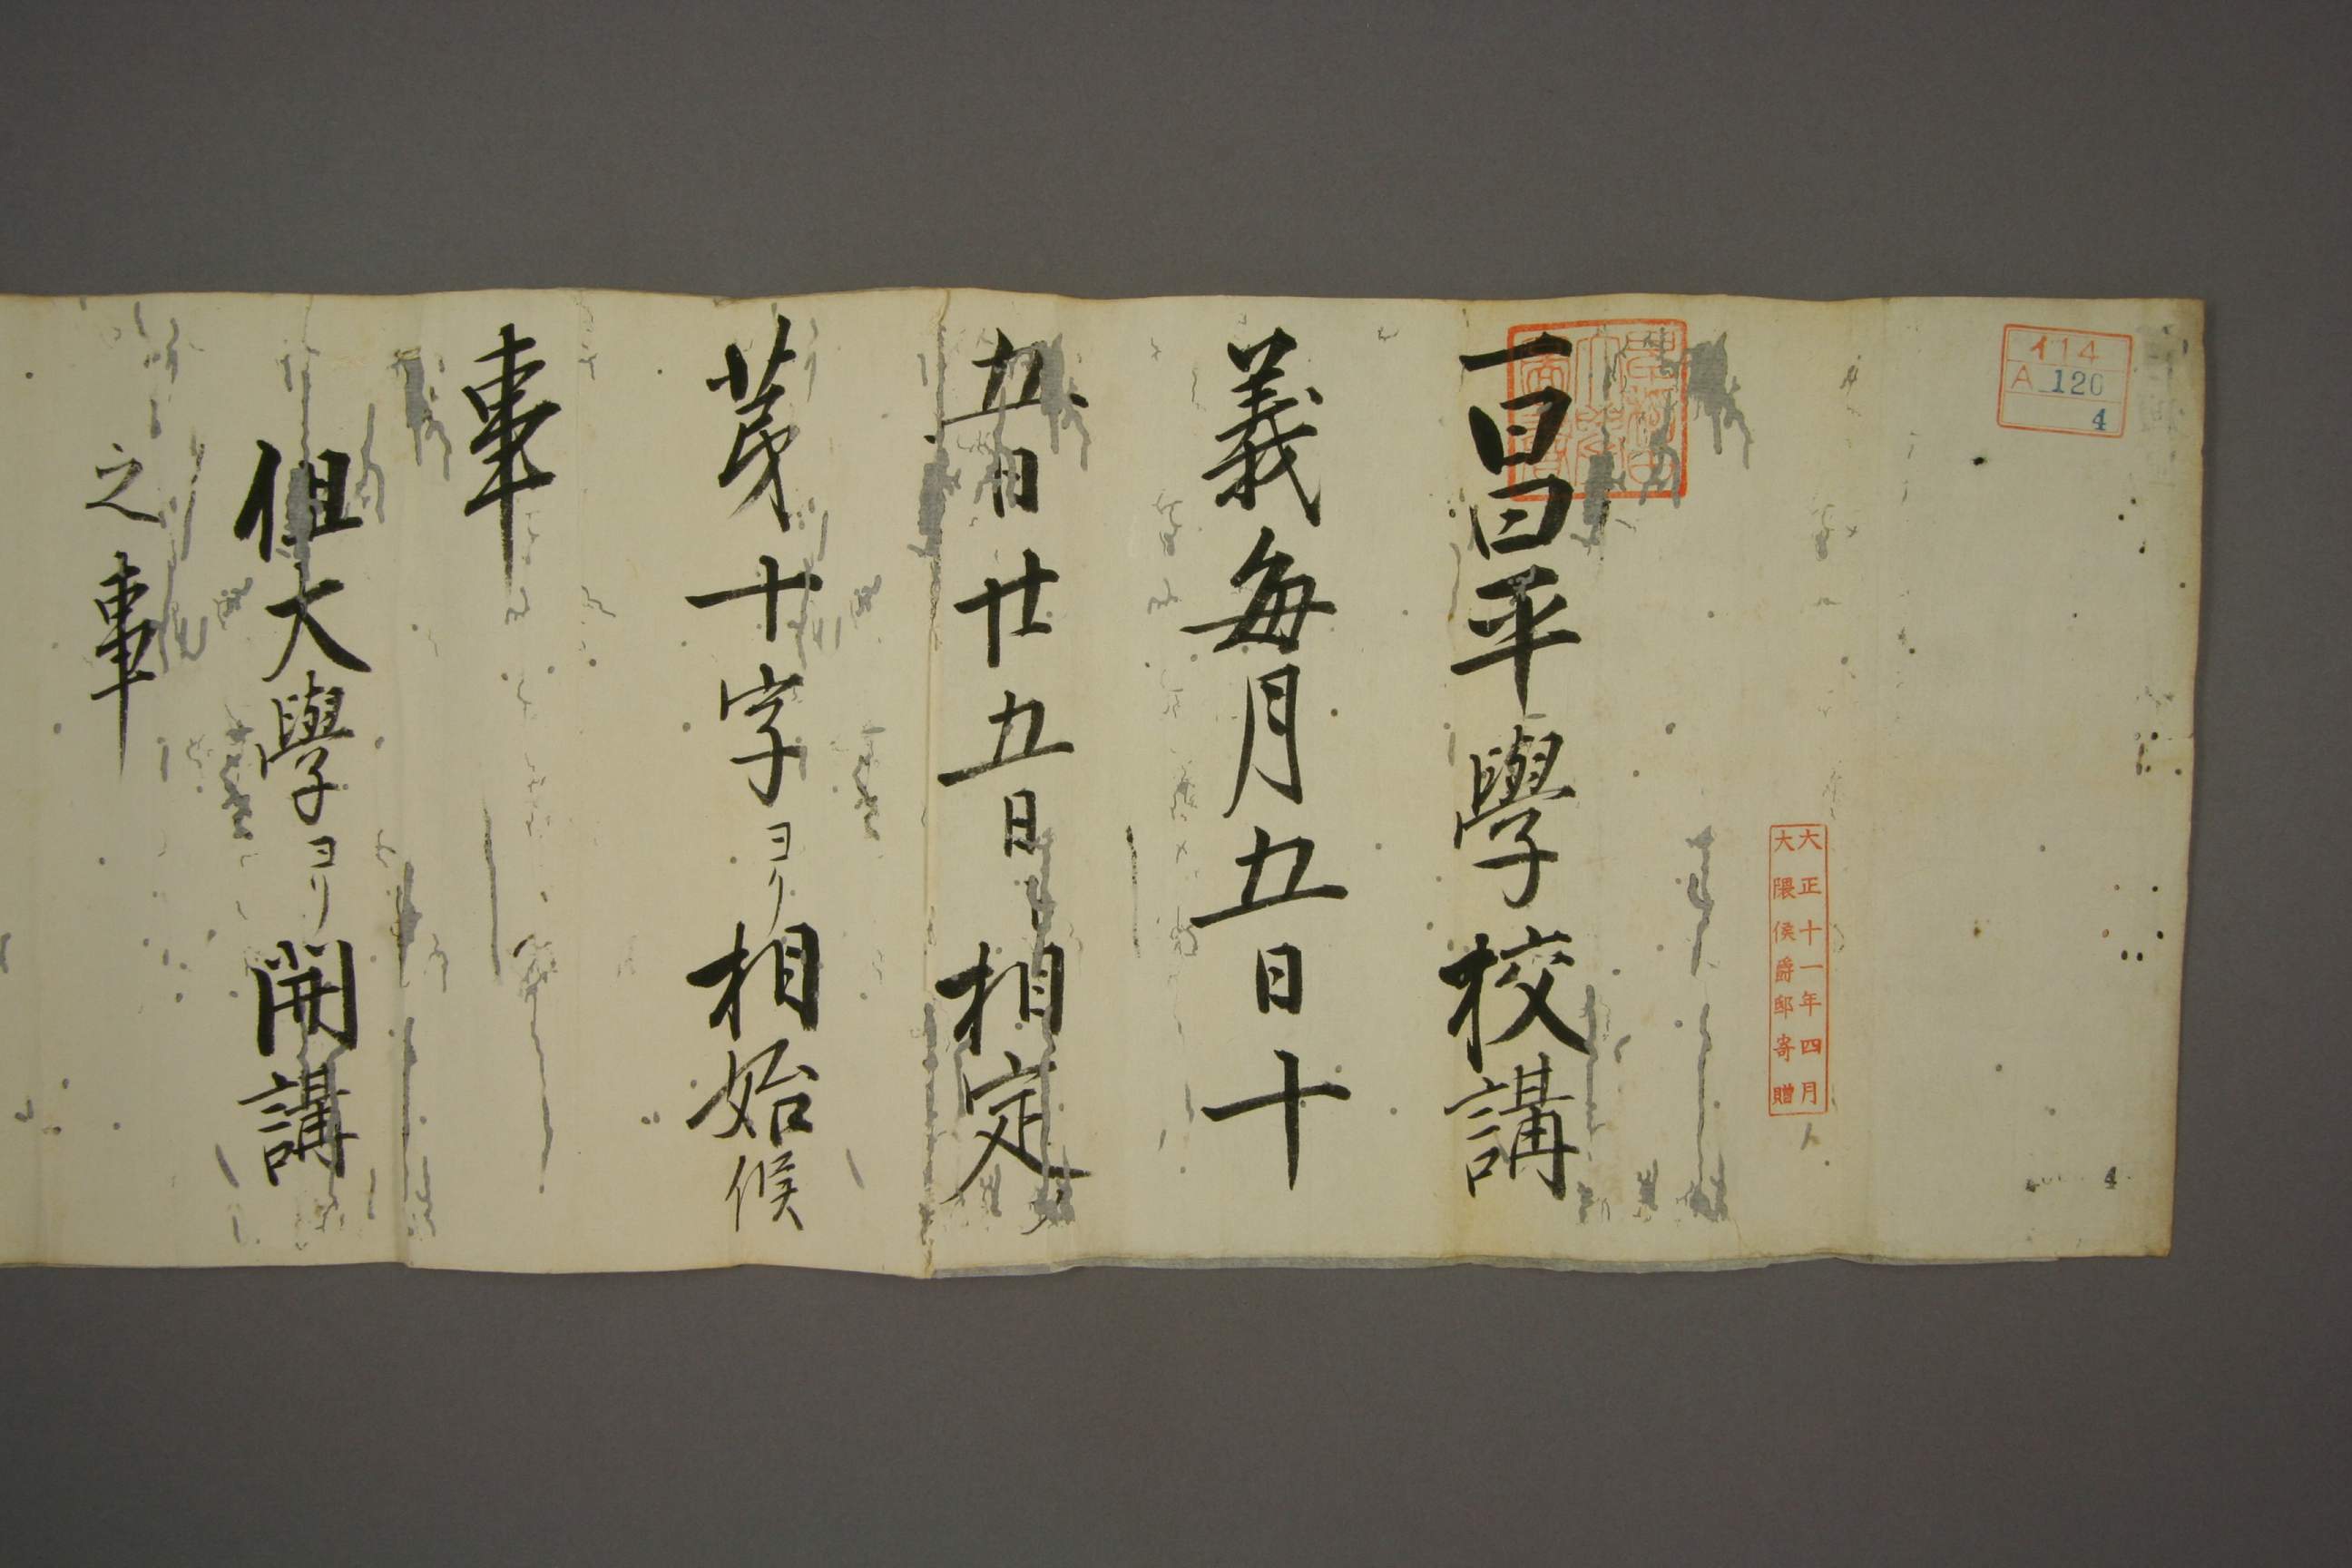 イ14
A 126
4
大正十一年四月
大隈侯爵邸寄贈
4
一昌平學校講
義毎月五日十
五日廿五日相定
第十字ヨリ相始候
事
但大學ヨリ開講
之事